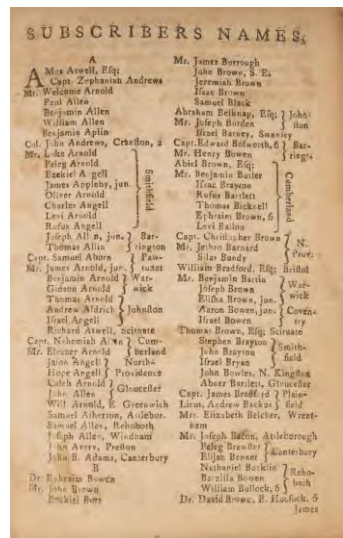 SUBSCRIBERS NAMES,
A
AMos Atwell, Esq;
Capt. Zephaniah Andrews
Mr. Welcome Arnold
Paul Allen
Benjamin Allen
William Allen
Benjamin Aplin
Col. John Andrews, Cranston, 2
Mr. Luke Arnold
Peleg Arnold
Ezekiel Angell
James Appleby, jun.
Oliver Arnold
Charles Angell
Levi Arnold
Rufus Angell
Smithfield
Joseph Allen, jun. } Bar-
Thomas Allin } rington
Capt. Samuel Ahorn } Paw-
Mr. James Arnold, jun. } tuxet
Benjamin Arnold } War-
Gideon Arnold } wick
Thomas Arnold
Andrew Aldrich } Johnston
Israel Angell
Richard Atwell, Scituate
Capt. Nehemiah Allen } Com-
Mr. Eleazer Arnold } berland
Jason Angell } North-
Hope Angell } Providence
Caleb Arnold } Gloucester
John Allen
Will. Arnold, E. Greenwich
Samuel Atherton, Attlebor.
Samuel Allen, Rehoboth
Joseph Allen, Windham
John Avery, Preston
John B. Adams, Canterbury
B
Dr. Ephraim Bowen
Mr. John Brown
Ezekiel Burr
Mr. James Burrough
John Brown, S. E.
Jeremiah Brown
Isaac Brown
Samuel Black
Abraham Belknap, Esq; } John-
Mr. Joseph Borden } ston
Israel Barney, Swanzey
Capt. Edward Bosworth, 6 } Bar-
Mr. Henry Bowen } ringt.
Abiel Brown, Esq;
Mr. Benjamin Butler
Isaac Brayton
Rufus Bartlett
Thomas Bicknell
Ephraim Brown, 6
Levi Ballou
Cumberland
Capt. Christopher Brown } N.
Mr. Jethro Barnard
Silas Bandy } Prov.
William Bradford, Esq; Bristol
Mr. Benjamin Bartin
Joseph Brown } War-
Elisha Brown, jun. } wick
Aaron Bowen, jun. } Coven-
Israel Bowen } try
Thomas Brown, Esq; Scituate
Stephen Brayton } Smith-
John Brayton
Israel Bryan } field
John Bowles, N. Kingston
Abner Bartlett, Gloucester
Capt. James Bradford } Plain-
Lieut. Andrew Backus } field
Mrs. Elizabeth Belcher, Wrent-
ham
Mr. Joseph Bacon, Attleborough
Peleg Brewster } Canterbury
Elijah Bennet
Nathaniel Bucklin } Reho-
Barzilla Bowen
William Bullock, 6 } both
Dr. David Brown, E. Hoosuck, 6
James